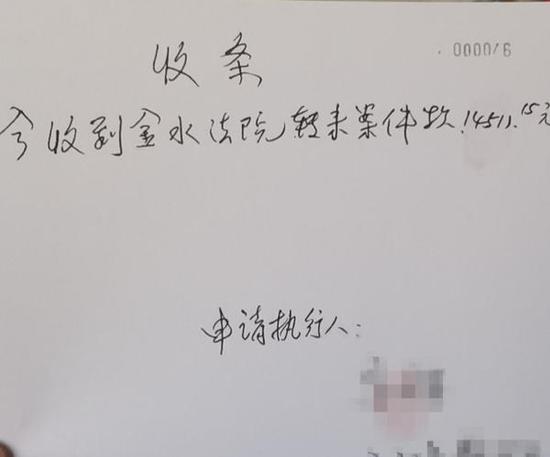 000016
收条
今收到金水法院转来案件款14511.15元
申请执行人: